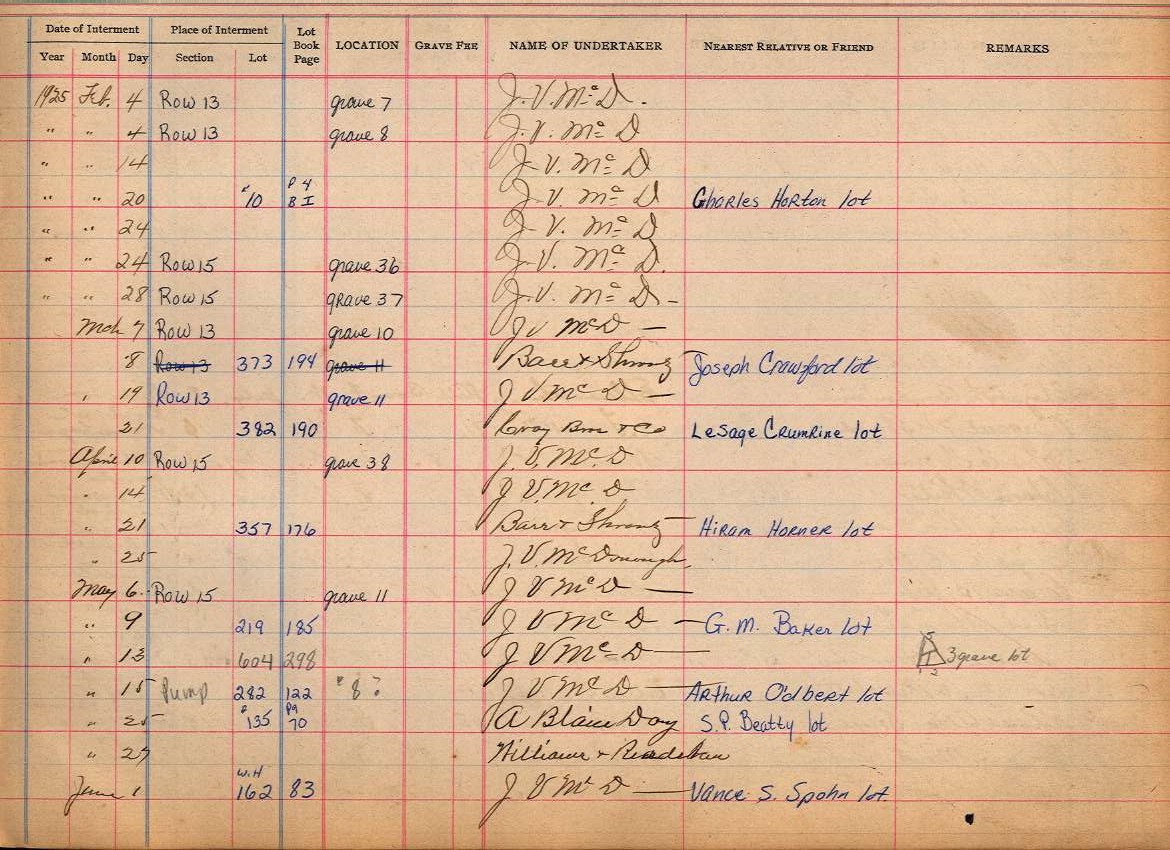 Date of Interment Place of Interment Lot Book Page LOCATION GRAVE FEE NAME OF UNDERTAKER NEAREST RELATIVE OR FRIEND REMARKS
Year Month Day Section Lot
1925 Feb. 4 Row 13 grave 7 J. V. Mc D.
" " 4 Row 13 grave 8 J. V. Mc D
" " 14 J. V. Mc D
" " 20 #10 P 4 B I J. V. Mc D Charles Horton lot
" " 24 J. V. Mc D
" " 24 Row 15 grave 36 J. V. Mc D.
" " 28 Row 15 grave 37 J. V. Mc D -
Mch 7 Row 13 grave 10 J V McD —
" 8 Row 13 373 194 grave 11 Barr & Joseph Crawford lot
" 19 Row 13 grave 11 J V Mc D —
21 382 190 Bro & Co LeSage Crumrine lot
April 10 Row 15 grave 38 J. V. Mc. D
" 14 J V Mc D
" 21 357 176 Barr & Hiram Horner lot
" 25 J. V. McDonough
May 6 Row 15 grave 11 J V Mc D —
" 9 219 185 J V Mc D — G. M. Baker lot
" 13 604 298 J V Mc D — 3 grave lot
" 15 Pump 282 122 "8"? J V Mc D — Arthur O'dbert lot
" 25 #135 Pg 70 A Blain Day S. P. Beatty lot
" 27 Williams &
June 1 W.H 162 83 J V Mc D — Vance S. Spohn lot.